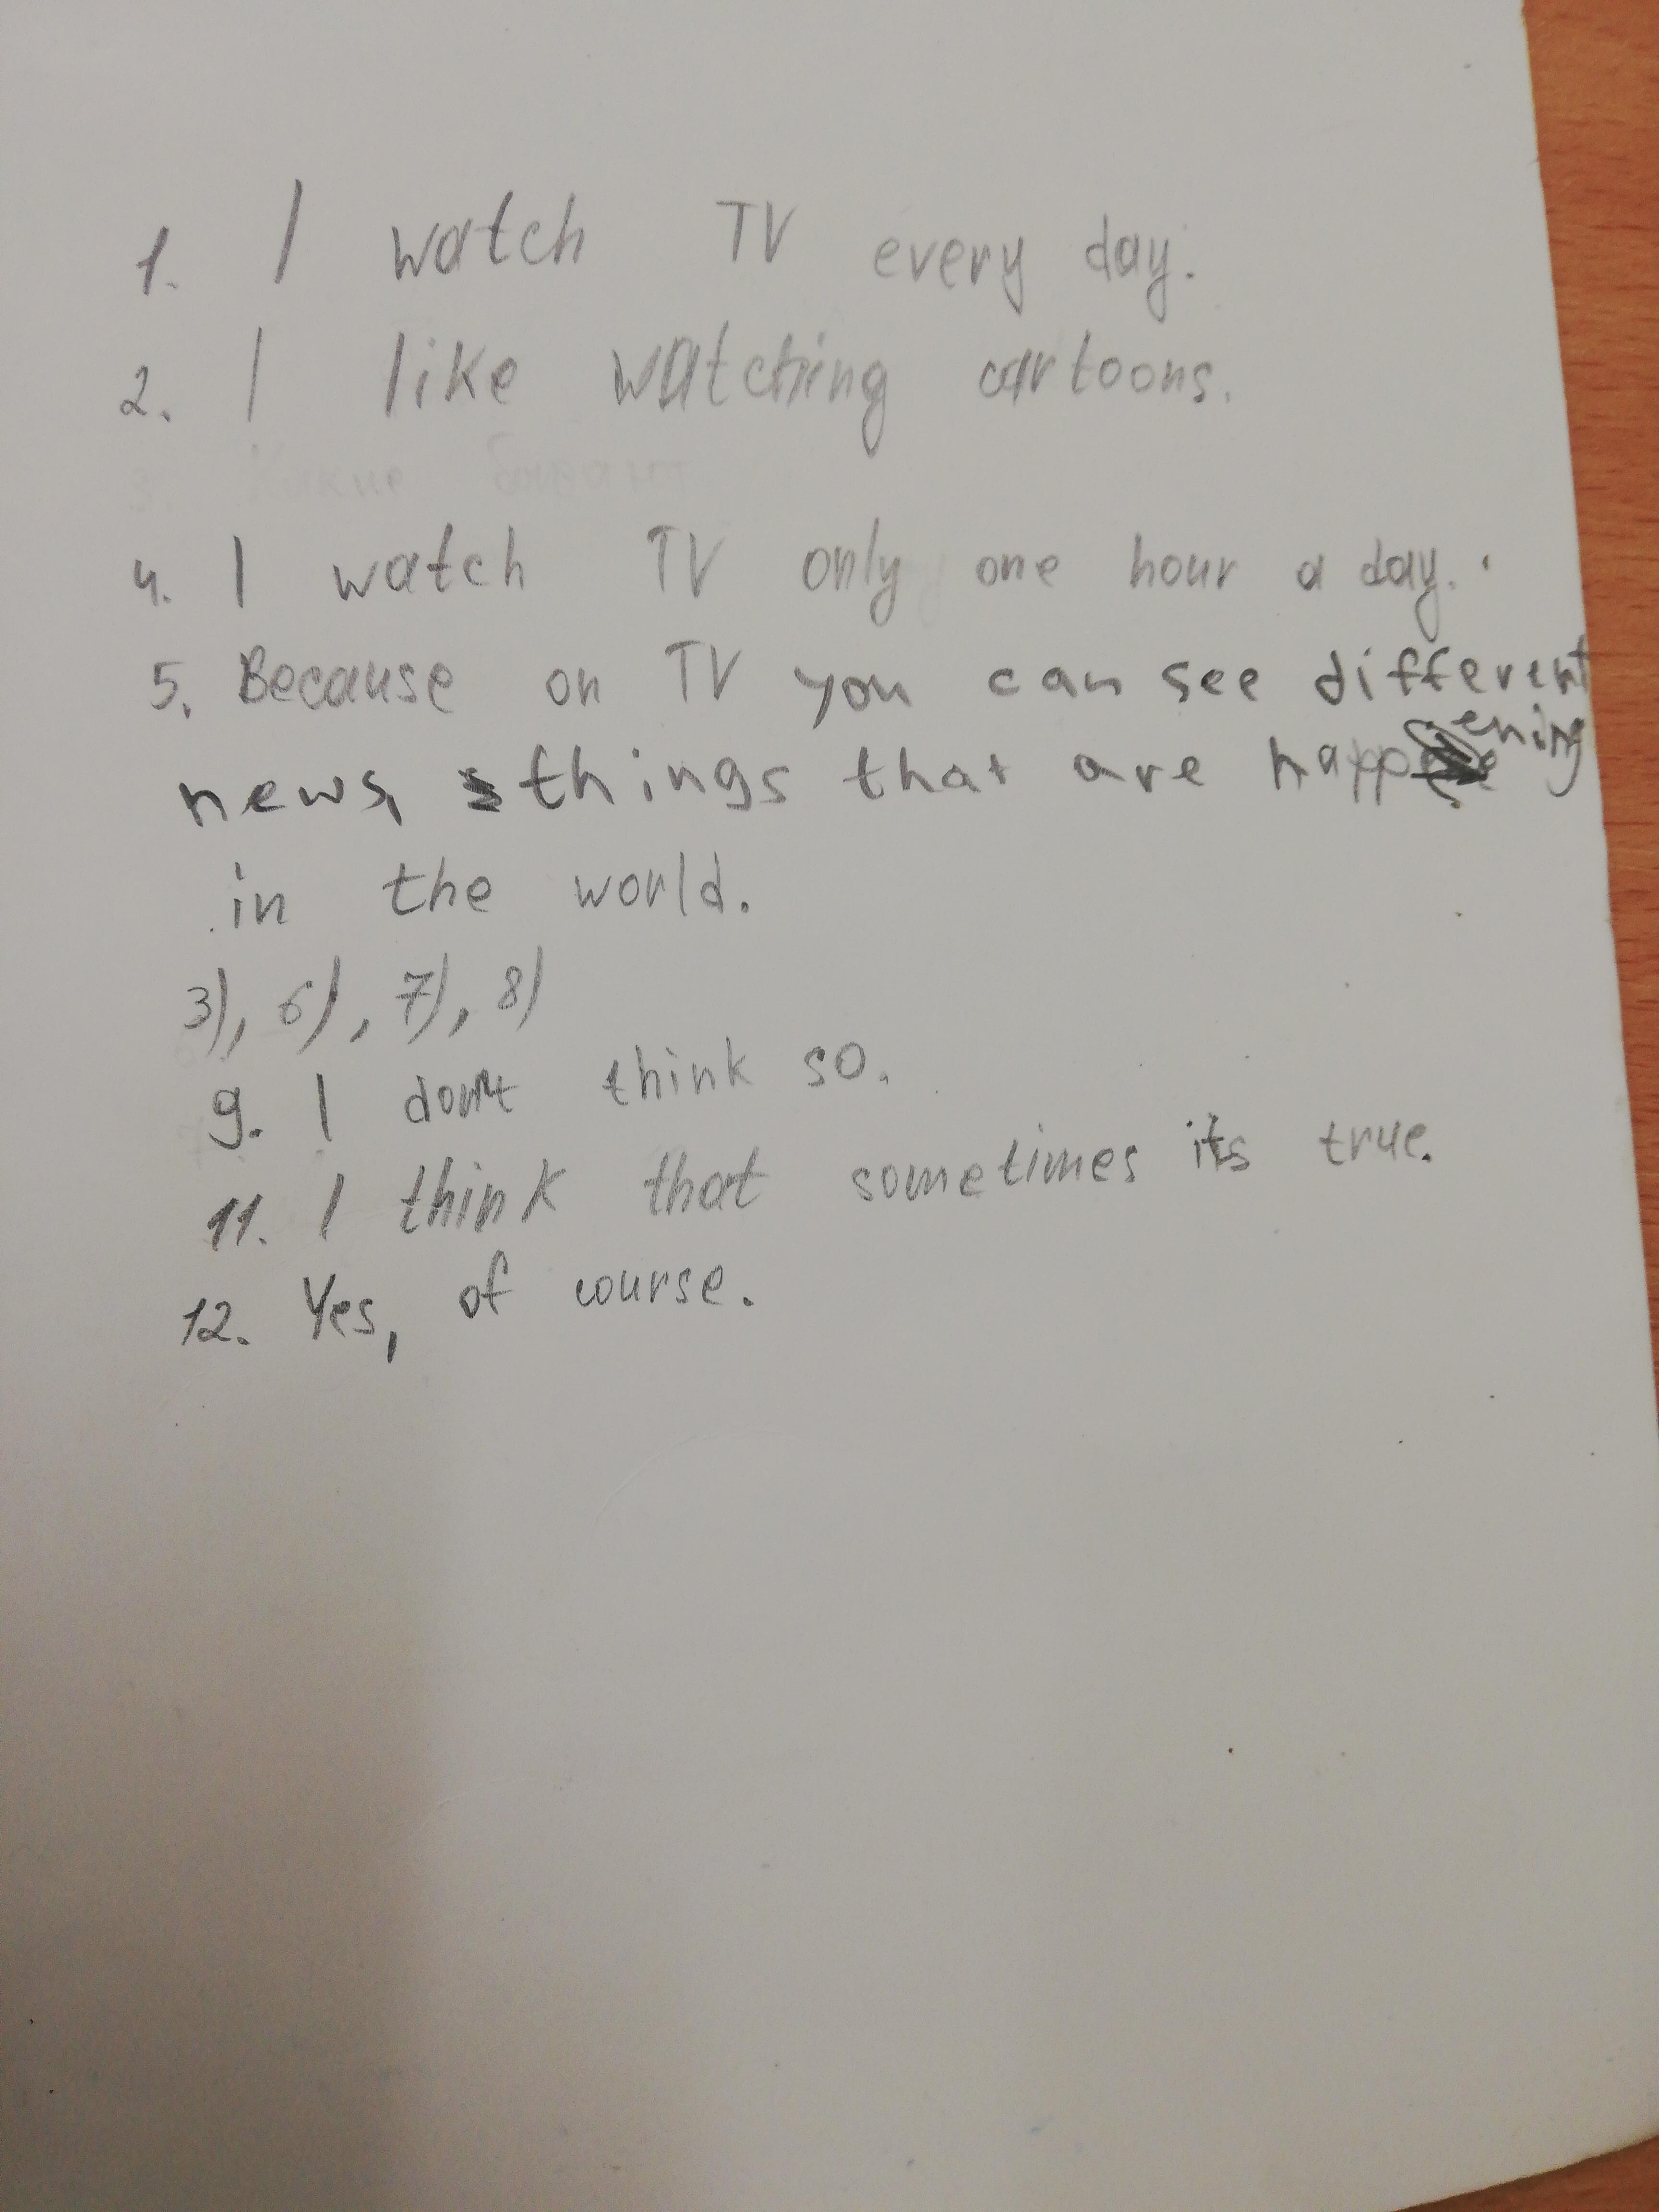 1. I watch TV every day.
2. I like watching cartoons.
3. Какие бывают
4. I watch TV only one hour a day.
5. Because on TV you can see different
news, things that are happening
in the world.
3), 6), 7), 8)
9. I don't think so.
11. I think that sometimes its true.
12. Yes, of course.